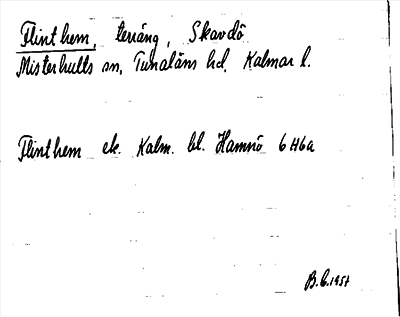 Flinthem, terräng, Skavdö
Misterhults sn, Tunaläns hd. Kalmar l.
Flinthem ek. Kalm. bl. Hamnö 6 H6a
B.C. 1957